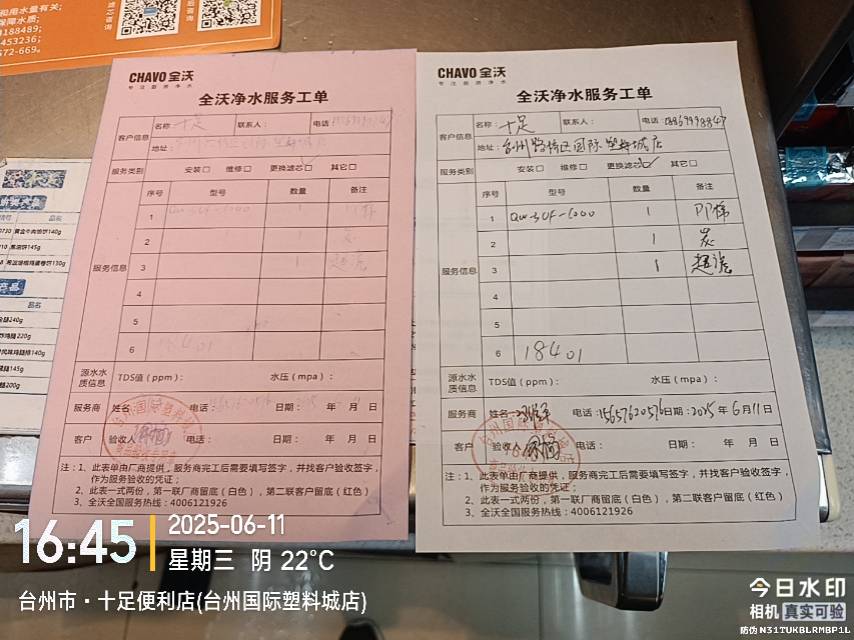 和用水量有关;
保障水质;
CHAVO 全沃
专注直饮净水
全沃净水服务工单
客户信息
名称: 十足
联系人:
电话:
地址:
服务类别
安装□ 维修□ 更换滤芯□ 其它□
服务信息
序号 型号 数量 备注
1 QW-3UF-1000 1
2 1 炭
3 1 超滤
4
5
6 18401
源水水质信息
TDS值(ppm): 水压(mpa):
服务商 姓名: 电话: 日期: 年 月 日
客户 验收人 电话: 日期: 年 月 日
注:1、此表单由厂商提供,服务商完工后需要填写签字,并找客户验收签字,
作为服务验收的凭证;
2、此表一式两份,第一联厂商留底(白色),第二联客户留底(红色)
3、全沃全国服务热线:4006121926
CHAVO 全沃
专注直饮净水
全沃净水服务工单
客户信息
名称: 十足
联系人:
电话: 18869998847
地址: 台州路桥区国际塑料城店
服务类别
安装□ 维修□ 更换滤芯☑ 其它□
服务信息
序号 型号 数量 备注
1 QW-3UF-1000 1 PP棉
2 1 炭
3 1 超滤
4
5
6 18401
源水水质信息
TDS值(ppm): 水压(mpa):
服务商 姓名: 电话: 15657620576 日期: 2025年 6月 11日
客户 验收人 电话: 日期: 年 月 日
注:1、此表单由厂商提供,服务商完工后需要填写签字,并找客户验收签字,
作为服务验收的凭证;
2、此表一式两份,第一联厂商留底(白色),第二联客户留底(红色)
3、全沃全国服务热线:4006121926
16:45
2025-06-11
星期三 阴 22°C
台州市·十足便利店(台州国际塑料城店)
今日水印
相机 真实可验
防伪 N31TUKBLRMBP1L